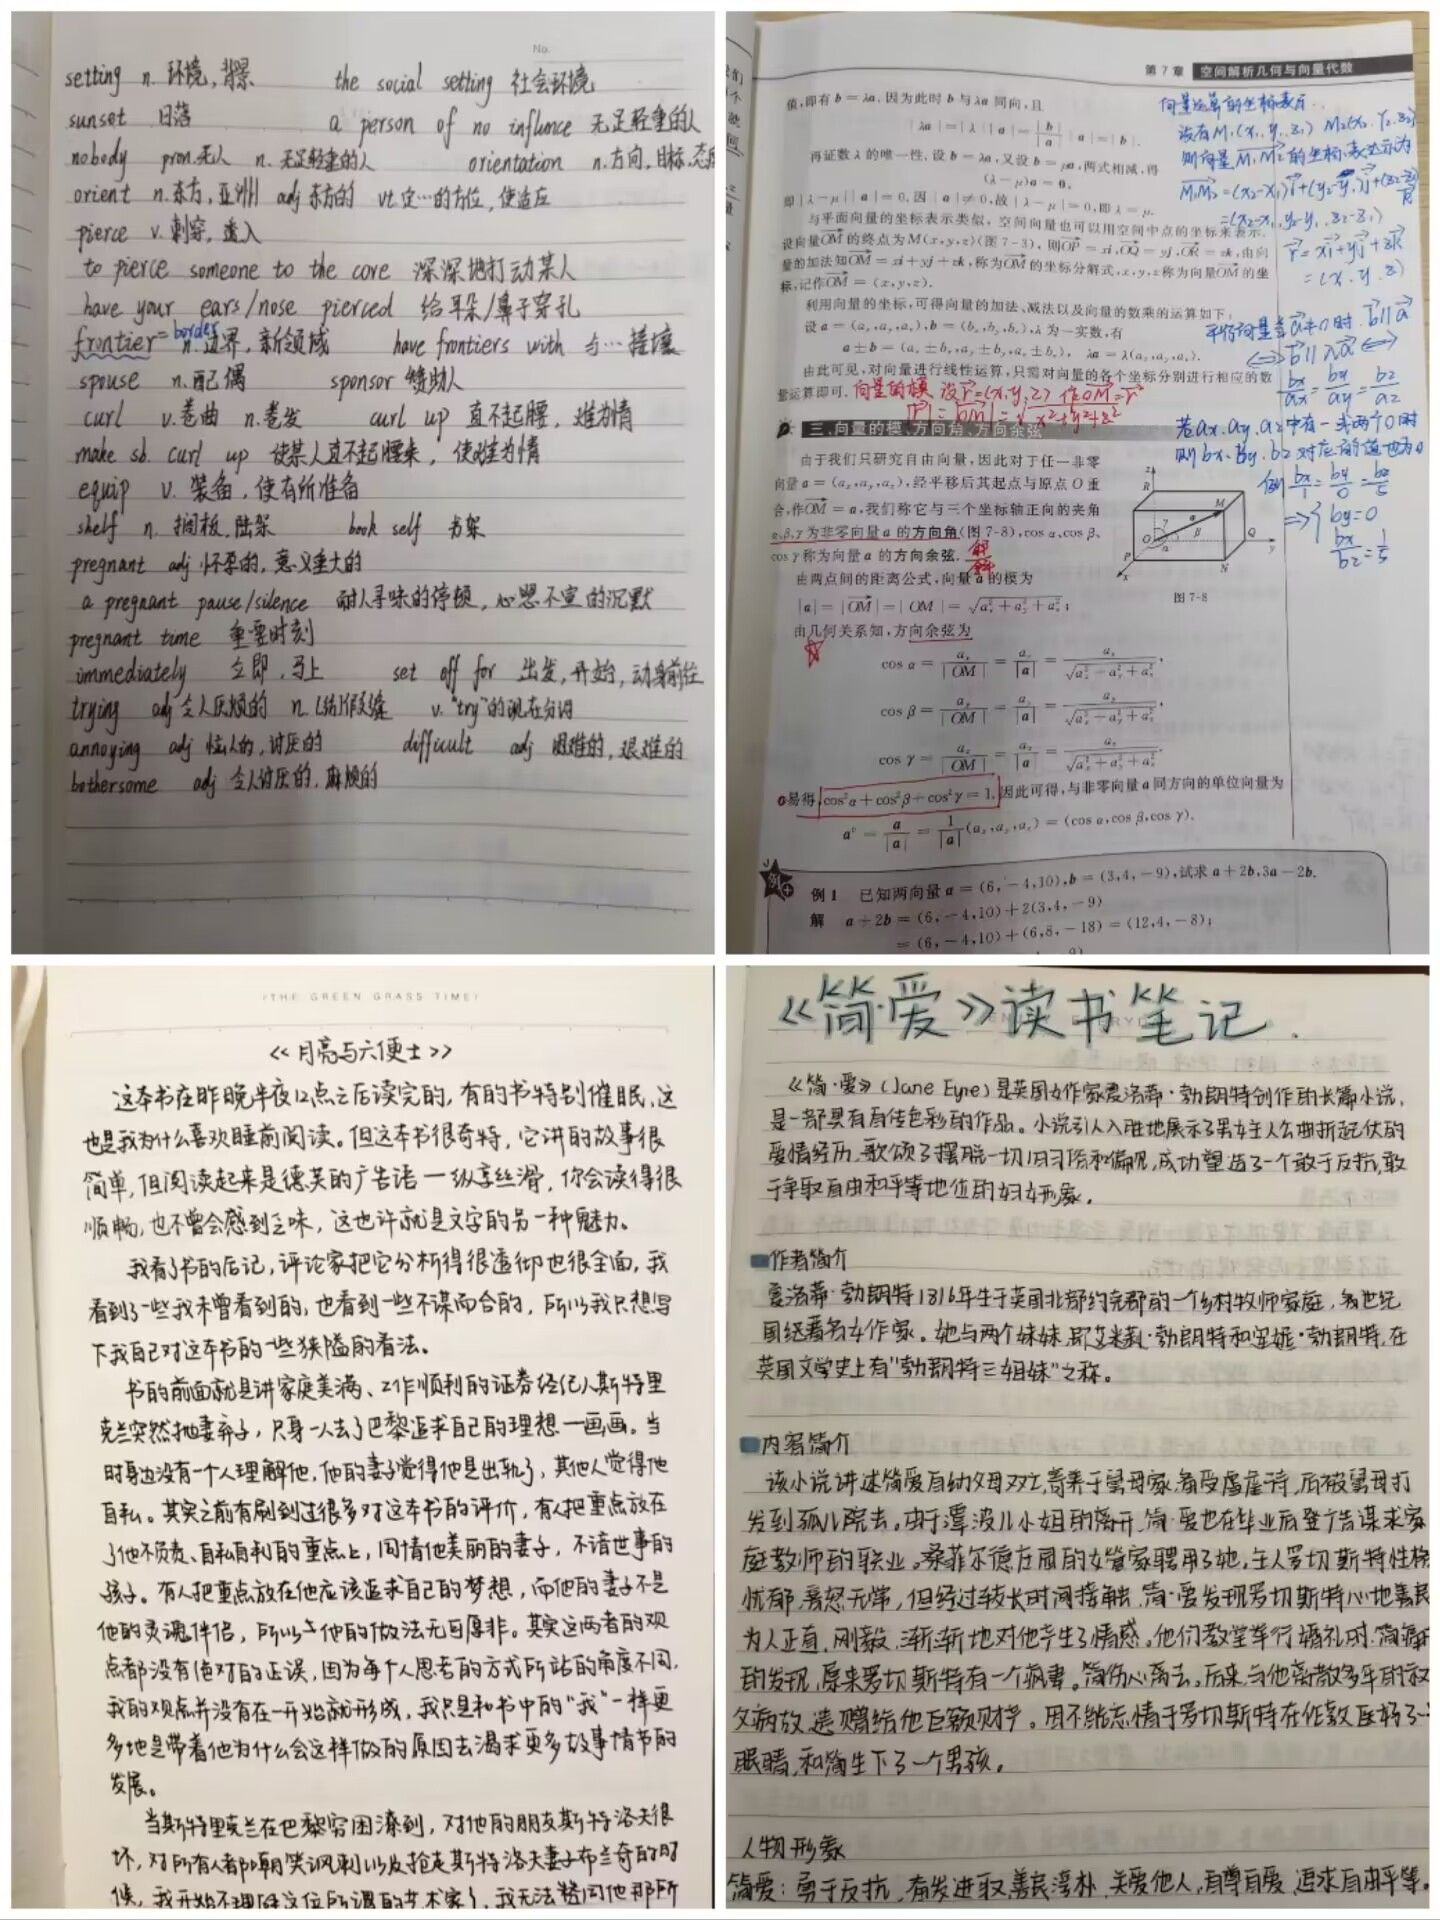 No.
setting n. 环境, 背景 the social setting 社会环境
sunset 日落 a person of no influnce 无足轻重的人
nobody pron.无人 n. 无足轻重的人 orientation n.方向,目标,态度
orient n.东方,亚洲 adj 东方的 vt 定…的方位,使适应
pierce v.刺穿,透入
to pierce someone to the core 深深地打动某人
have your ears/nose pierced 给耳朵/鼻子穿孔
frontier =border n.边界,新领域 have frontiers with 与…接壤
spouse n.配偶 sponsor 赞助人
curl v.卷曲 n.卷发 curl up 直不起腰,难为情
make sb. curl up 使某人直不起腰来,使难为情
equip v. 装备,使有所准备
shelf n. 搁板,陆架 book self 书架
pregnant adj 怀孕的,意义重大的
a pregnant pause/silence 耐人寻味的停顿,心照不宣的沉默
pregnant time 重要时刻
immediately 立即,马上 set off for 出发,开始,动身前往
trying adj 令人厌烦的 v. "try"的现在分词
annoying adj 恼人的,讨厌的 difficult adj 困难的,艰难的
bothersome adj 令人讨厌的,麻烦的
第7章 空间解析几何与向量代数
值,即有 b = λa.因为此时 b 与 λa 同向,且
|λa| = |λ||a| = |b/a||a| = |b|.
再证数 λ 的唯一性.设 b = λa,又设 b = μa,两式相减,得
(λ−μ)a = 0,
即 |λ−μ||a| = 0,因 |a| ≠ 0,故 |λ−μ| = 0,即 λ = μ.
与平面向量的坐标表示类似,空间向量也可以用空间中点的坐标来表示.
设向量OM的终点为M(x,y,z)(图7-3),则OP = xi,OQ = yj,OR = zk,由向
量的加法知OM = xi+yj+zk,称为OM的坐标分解式,x,y,z称为向量OM的坐
标,记作OM = (x,y,z).
利用向量的坐标,可得向量的加法、减法以及向量的数乘的运算如下:
设 a = (aₓ,aᵧ,a_z),b = (bₓ,bᵧ,b_z),λ 为一实数,有
a±b = (aₓ±bₓ,aᵧ±bᵧ,a_z±b_z), λa = λ(aₓ,aᵧ,a_z).
由此可见,对向量进行线性运算,只需对向量的各个坐标分别进行相应的数
量运算即可. 向量的模 设r=(x,y,z) 作OM=r
|r|=|OM|=√x²+y²+z²
三、向量的模、方向角、方向余弦
由于我们只研究自由向量,因此对于任一非零
向量 a = (aₓ,aᵧ,a_z),经平移后其起点与原点 O 重
合,作OM = a,我们称它与三个坐标轴正向的夹角
α,β,γ为非零向量 a 的方向角(图 7-8),cos α,cos β,
cos γ 称为向量 a 的方向余弦.
由两点间的距离公式,向量 a 的模为
|a| = |OM| = |OM| = √aₓ²+aᵧ²+a_z²;
由几何关系知,方向余弦为
cos α = aₓ/|OM| = aₓ/|a| = aₓ/√aₓ²+aᵧ²+a_z²,
cos β = aᵧ/|OM| = aᵧ/|a| = aᵧ/√aₓ²+aᵧ²+a_z²,
cos γ = a_z/|OM| = a_z/|a| = a_z/√aₓ²+aᵧ²+a_z²,
易得,cos²α+cos²β+cos²γ=1.因此可得,与非零向量 a 同方向的单位向量为
a⁰ = a/|a| = 1/|a|(aₓ,aᵧ,a_z) = (cos α,cos β,cos γ).
例 1 已知两向量 a = (6,−4,10),b = (3,4,−9),试求 a+2b,3a−2b.
解 a+2b = (6,−4,10)+2(3,4,−9)
= (6,−4,10)+(6,8,−18) = (12,4,−8);
向量运算的坐标表示
设有M₁(x₁,y₁,z₁) M₂(x₂,y₂,z₂)
则向量M₁M₂的坐标表达示为
M₁M₂=(x₂-x₁)i+(y₂-y₁)j+(z₂-z₁)k
=(x₂-x₁,y₂-y₁,z₂-z₁)
r=xi+yj+zk
=(x,y,z)
平行向量当a≠0时.b∥a
⟺b∥λa⟺
bx/ax=by/ay=bz/az
若ax,ay,az中有一或两个0时
则bx,by,bz对应的值也为0
例 bx/1=by/0=bz/5
⇒{by=0
bx/bz=1/5
z
R
M
O
Q
y
P
N
x
图 7-8
(THE GREEN GRASS TIME)
《月亮与六便士》
这本书在昨晚半夜12点之后读完的,有的书特别催眠,这
也是我为什么喜欢睡前阅读。但这本书很奇特,它讲的故事很
简单,但阅读起来是德芙的广告语一纵享丝滑,你会读得很
顺畅,也不曾会感到乏味,这也许就是文字的另一种魅力。
我看了书的后记,评论家把它分析得很透彻也很全面,我
看到了一些我未曾看到的,也看到一些不谋而合的,所以我只想写
下我自己对这本书的一些狭隘的看法。
书的前面就是讲家庭美满、工作顺利的证券经纪人斯特里
克兰突然抛妻弃子,只身一人去了巴黎追求自己的理想一画画。当
时身边没有一个人理解他,他的妻子觉得他是出轨了,其他人觉得他
自私。其实之前有刷到过很多对这本书的评价,有人把重点放在
了他不负责、自私自利的重点上,同情他美丽的妻子,不谙世事的
孩子。有人把重点放在他应该追求自己的梦想,而他的妻子不是
他的灵魂伴侣,所以他的做法无可厚非。其实这两者的观
点都没有绝对的正误,因为每个人思考的方式所站的角度不同,
我的观点并没有在一开始就形成,我只是和书中的"我"一样更
多地是带着他为什么会这样做的原因去渴求更多故事情节的
发展。
当斯特里克兰在巴黎穷困潦到,对他的朋友斯特洛夫很
坏,对所有人都嘲笑讽刺以及抢走斯特洛夫妻子布兰奇的时
候,我开始不理解这位所谓的艺术家了,我无法赞同他那所
《简·爱》读书笔记.
《简·爱》(Jane Eyre)是英国女作家夏洛蒂·勃朗特创作的长篇小说,
是一部具有自传色彩的作品。小说引人入胜地展示了男女主人公曲折起伏的
爱情经历,歌颂了摆脱一切旧习俗和偏见,成功塑造了一个敢于反抗,敢
于争取自由和平等地位的妇女形象。
作者简介
夏洛蒂·勃朗特1816年生于英国北部约克郡的一个乡村牧师家庭,
国经著名女作家。她与两个妹妹,即艾米莉·勃朗特和安妮·勃朗特,在
英国文学史上有"勃朗特三姐妹"之称。
内容简介
该小说讲述简爱自幼父母双亡,寄养于舅母家,备受虐待,后被舅母打
发到孤儿院去。由于谭波儿小姐的离开,简·爱也在毕业后登广告谋求家
庭教师的职业。桑菲尔德庄园的女管家聘用了她,主人罗切斯特性格
忧郁,喜怒无常,但经过较长时间接触,简·爱发现罗切斯特心地善良
为人正直,刚毅,渐渐地对他产生了情感。他们教堂举行婚礼时,简
的发现,原来罗切斯特有一个疯妻。简伤心离去。后来,与他离散多年的叔
父病故,遗赠给他巨额财产。因不能忘情于罗切斯特在
眼睛,和简生下了一个男孩。
人物形象
简爱:勇于反抗,有奋进取,善良淳朴,关爱他人,自尊自爱,追求自由平等。